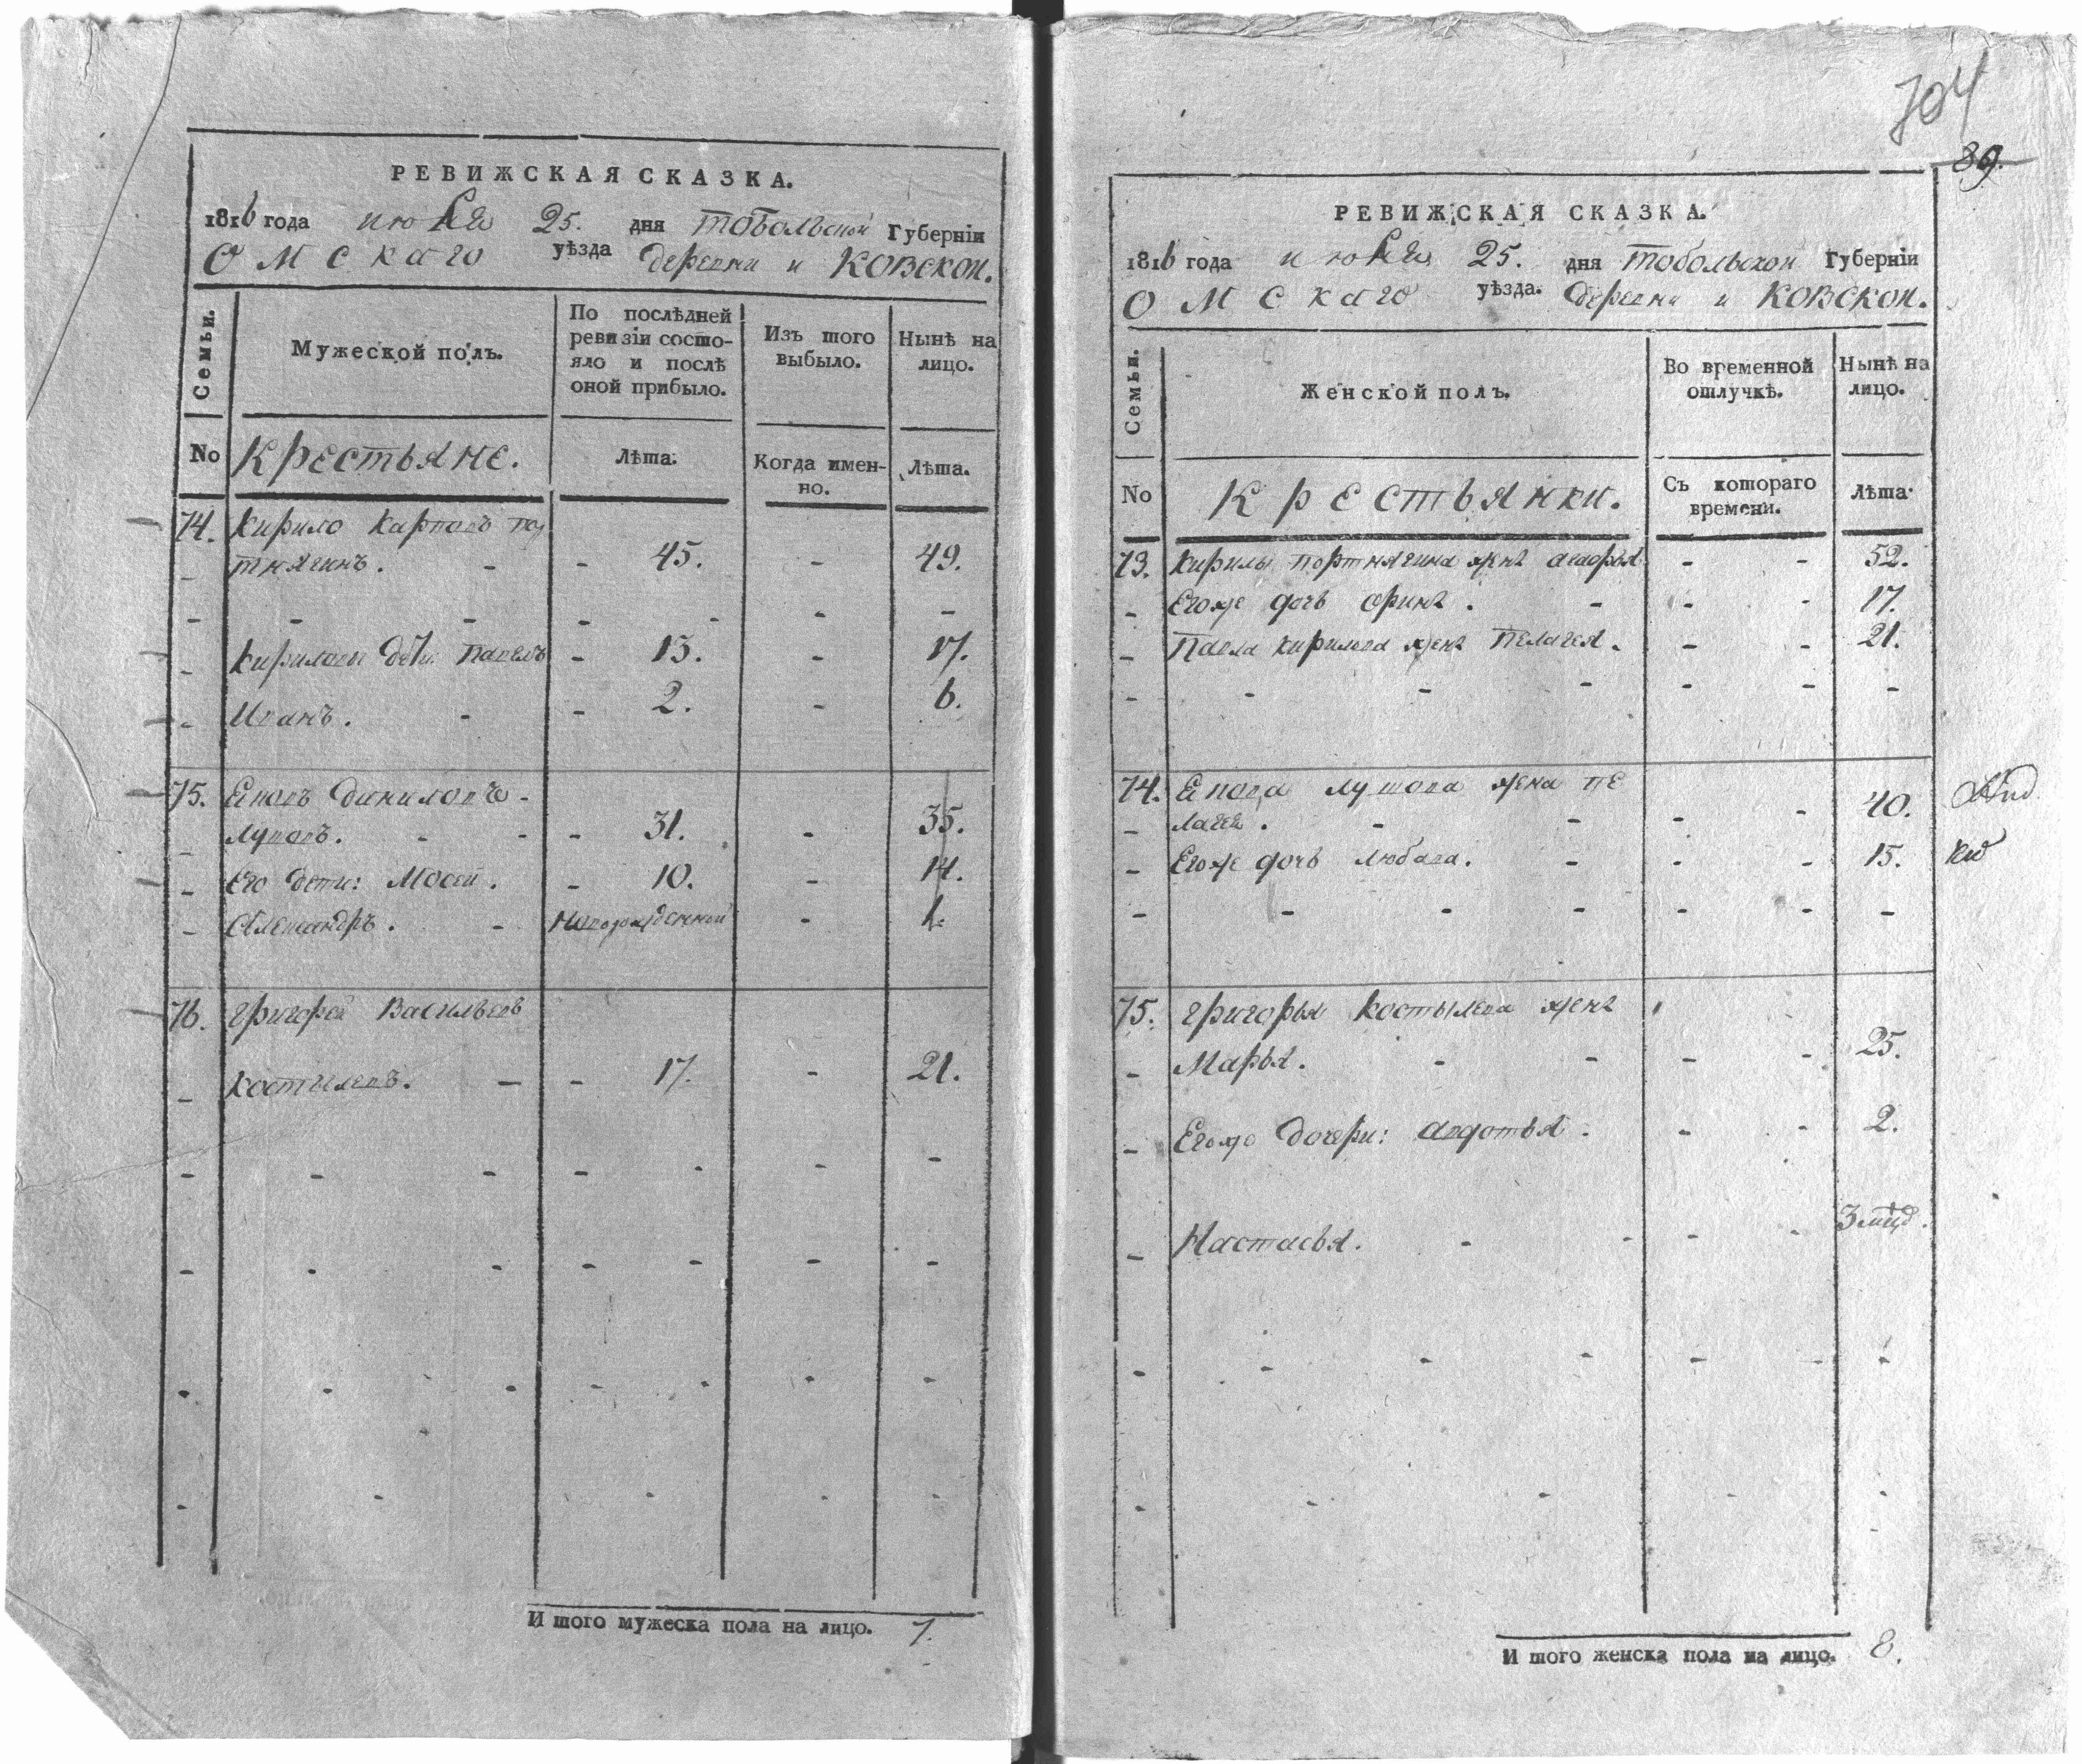 РЕВИЖСКАЯ СКАЗКА.
1816 года июля 25. дня Тобольской Губерніи
Омскаго уѣзда деревни иковской.
Семьи.
Мужеской полъ.
По послѣдней
ревизіи состо-
яло и послѣ
оной прибыло.
Изъ того
выбыло.
Нынѣ на
лицо.
No Крестьяне.
Лѣта.
Когда имен-
но.
Лѣта.
74. Кирило Карповъ По
тнягинъ. - - 45. - 49.
- - - - - - -
- Кириловы дѣти: Павелъ - 13. - 17.
- Иванъ. - - 2. - 6.
75. Екповъ Даниловъ -
- Луповъ. - - - 31. - 35.
- Его дети: Мосей. - 10. - 14.
- Александръ. - Новорожденной - 1.
76. Григорей Васильевъ
- Костылевъ. - - 17. - 21.
- - - - - - -
- - - - - - -
- - - - - - -
Итого мужеска пола на лицо. 7.
704
89.
РЕВИЖСКАЯ СКАЗКА.
1816 года июля 25. дня Тобольской Губерніи
Омскаго уѣзда. деревни иковской.
Семьи.
Женской полъ.
Во временной
отлучкѣ.
Нынѣ на
лицо.
No Крестьянки.
Съ котораго
времени.
Лѣта.
73. Кирилы Портнягина жена агафья - - 52.
- Егоже дочь орина. - - - 17.
- Павла Кирилова жена Пелагея. - - 21.
- - - - - - -
74. Лупова жена Пе
- лагея. - - - - 40.
- Егоже дочь любава. - - - 15.
- - - - - - -
75. Григорья Костылева жена
- Марья. - - - - 25.
- Егоже дочери: авдотья. - - 2.
- Настасья. - - - - 3 мцд.
- - - - - - -
Итого женска пола на лицо. 8.